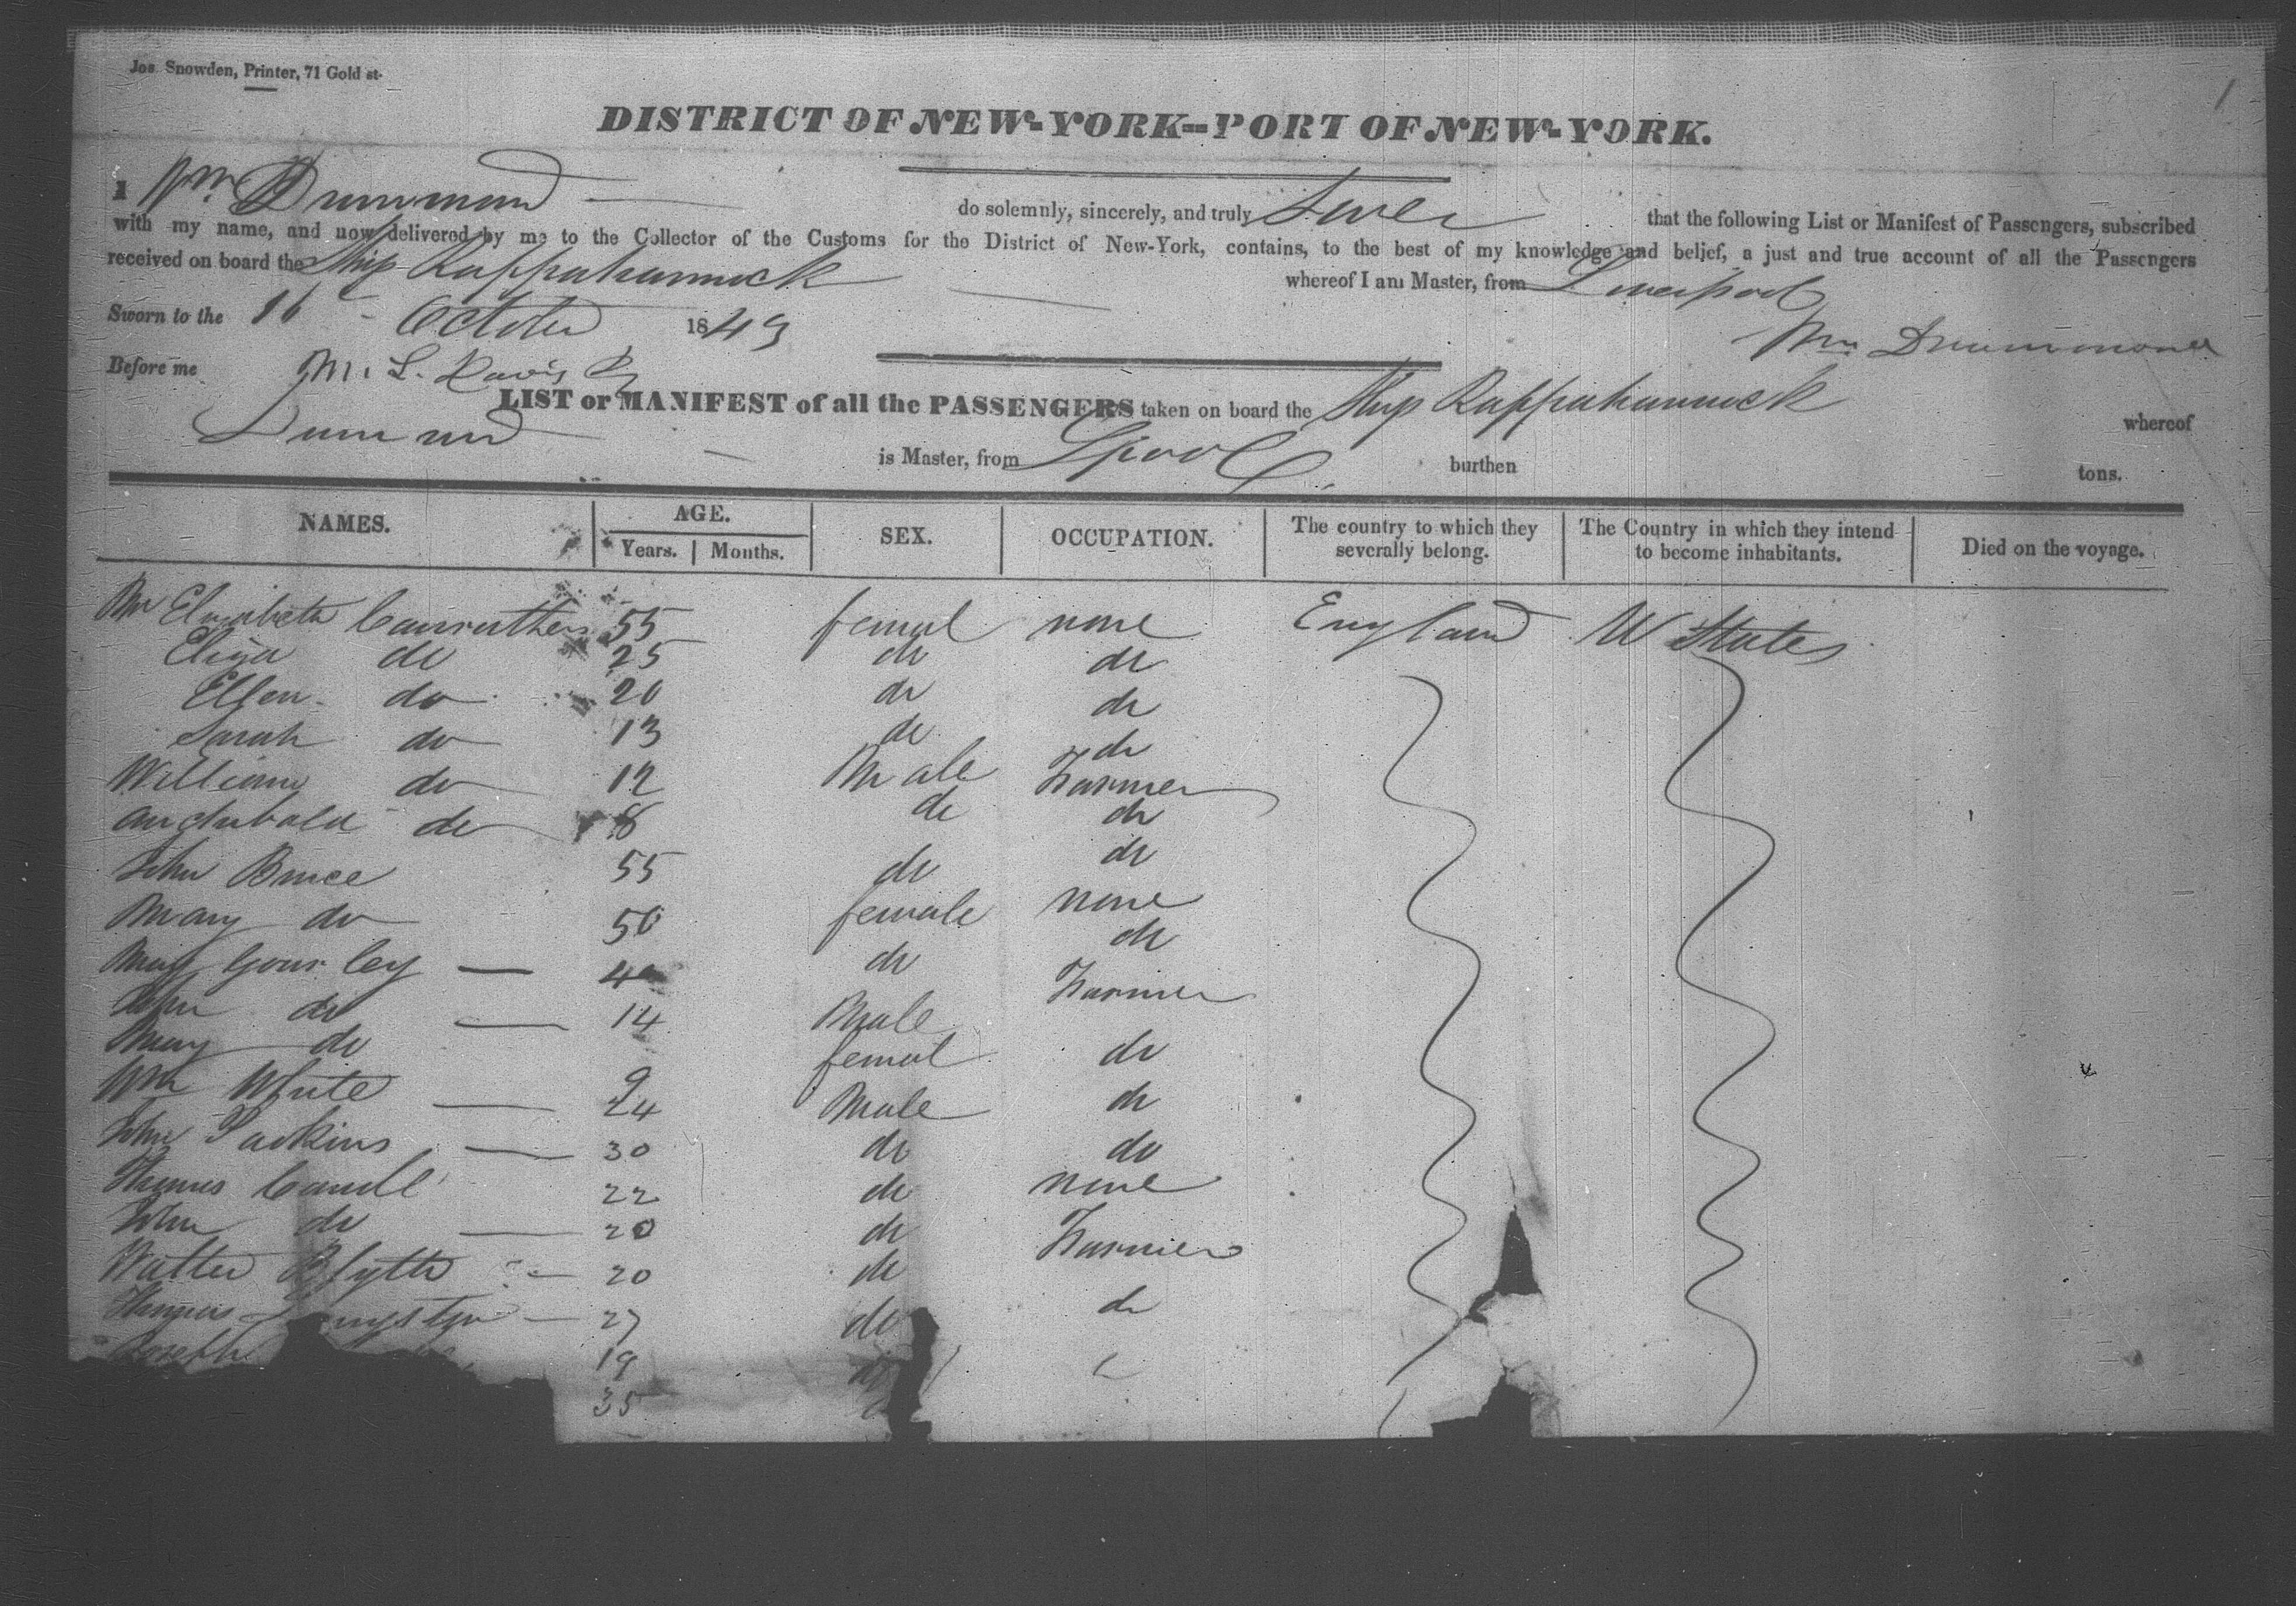 Jos. Snowden, Printer, 71 Gold st.
1
DISTRICT OF NEW-YORK--PORT OF NEW-YORK.
I Wm Drummond do solemnly, sincerely, and truly Swear that the following List or Manifest of Passengers, subscribed
with my name, and now delivered by me to the Collector of the Customs for the District of New-York, contains, to the best of my knowledge and belief, a just and true account of all the Passengers
received on board the Ship Rappahannock whereof I am Master, from Liverpool
Sworn to the 16 October 1849
Wm Drummond
Before me M. L. Davis
LIST or MANIFEST of all the PASSENGERS taken on board the Ship Rappahannock whereof
Drummond is Master, from Lpool burthen tons.
NAMES. AGE. Years. Months. SEX. OCCUPATION. The country to which they severally belong. The Country in which they intend to become inhabitants. Died on the voyage.
Mrs Elizabeth Carruthers 55 femal none England U States
Eliza do 25 do do
Ellen do 20 do do
Sarah do 13 do do
William do 12 Male Farmer
Archibald do 8 do do
John Bruce 55 do do
Mary do 50 female none
Mary Gourley 40 do do
John do 14 Male Farmer
Mary do 9 femal do
Wm White 24 Male do
John 30 do do
Thomas 22 do none
John do 20 do Farmer
Walter Blyth 20 do
Thomas 27 do do
Joseph 19
35